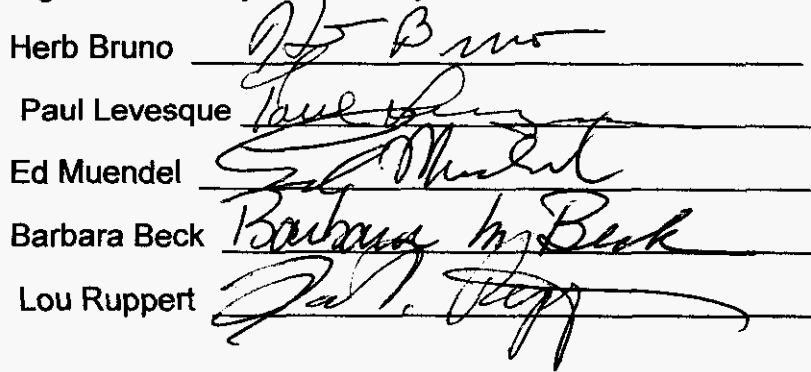 Herb Bruno H B runo
Paul Levesque Paul
Ed Muendel Ed Muendel
Barbara Beck Barbara M Beck
Lou Ruppert